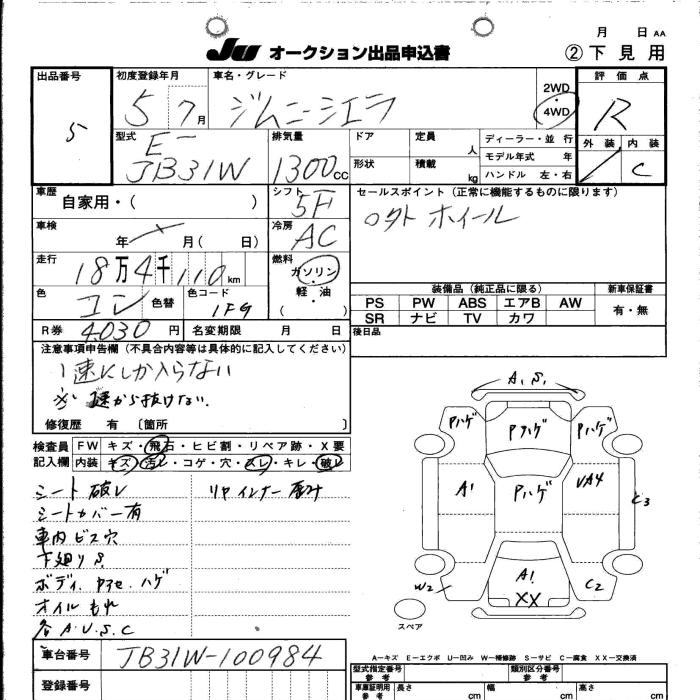 月 日 AA
JU オークション出品申込書
② 下見用
出品番号
5
初度登録年月
5 7月
車名・グレード
ジムニーシエラ
2WD
4WD
評価点
R
型式
E-
JB31W
排気量
1300cc
ドア
定員 人
形状
積載 kg
ディーラー・並行
モデル年式 年
ハンドル 左・右
外装 内装
C
車歴
自家用・( )
シフト
5F
セールスポイント (正常に機能するものに限ります)
車検
年 月( 日)
冷房
AC
走行
18万4千110km
燃料
ガソリン
軽油
( ・ )
色
コン
色替
色コード
1FG
装備品(純正品に限る)
PS PW ABS エアB AW
SR ナビ TV カワ
新車保証書
有・無
R券 4030円
名変期限 月 日
後日品
注意事項申告欄(不具合内容等は具体的に記入してください)
1速にしか入らない
※1速から抜けない.
修復歴 有 〔箇所 〕
検査員記入欄
FW キズ・飛石・ヒビ割・リペア跡・X要
内装 キズ・汚レ・コゲ・穴・スレ・キレ・破レ
シート破レ
シートカバー有
車内ビス穴
下廻りS.
オイルもれ
各A.U.S.C
A.S.
Pハゲ Pハゲ Pハゲ
A1 Pハゲ UA4 C3
W2 A1 XX C2
スペア
A－キズ E－エクボ U－凹み W－補修跡 S－サビ C－腐食 XX－交換済
車台番号
JB31W-100984
登録番号
型式指定番号 参考
類別区分番号 参考
車庫証明用 参考
長さ cm
幅 cm
高さ cm